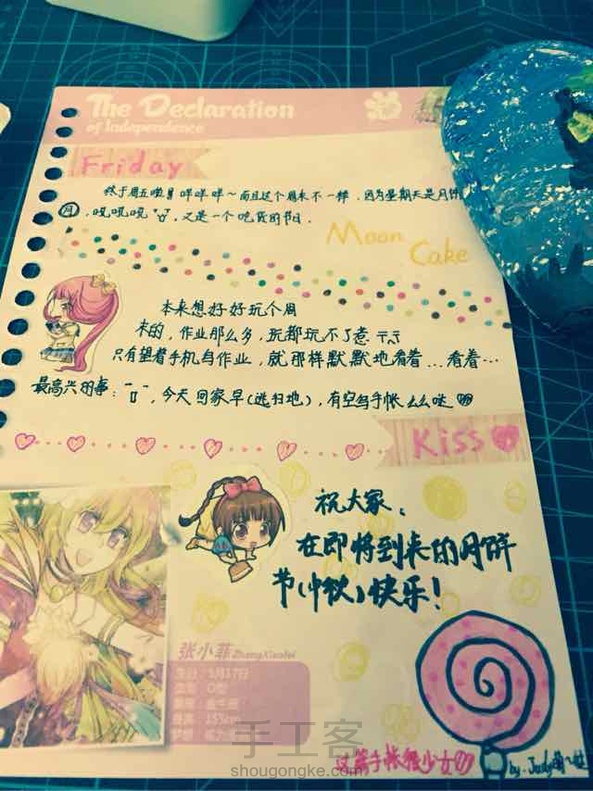 The Declaration
of Independence
Friday
终于周五啦!!咩咩咩~而且这个周末不一样,因为星期天是月饼
,吼吼吼,又是一个吃货的节日.
Moon
Cake
本来想好好玩个周
末的,作业那么多,玩都玩不了惹
只有望着手机与作业,就那样默默地看着...看着...
最高兴的事:今天回家早(逃扫地),有空写手帐么么哒
Kiss
祝大家:
在即将到来的月饼
节(中秋)快乐!
张小菲 ZhangXiaofei
生日:5月17日
血型:O型
手工客
shougongke.com
这篇手帐很少女
by. Judy